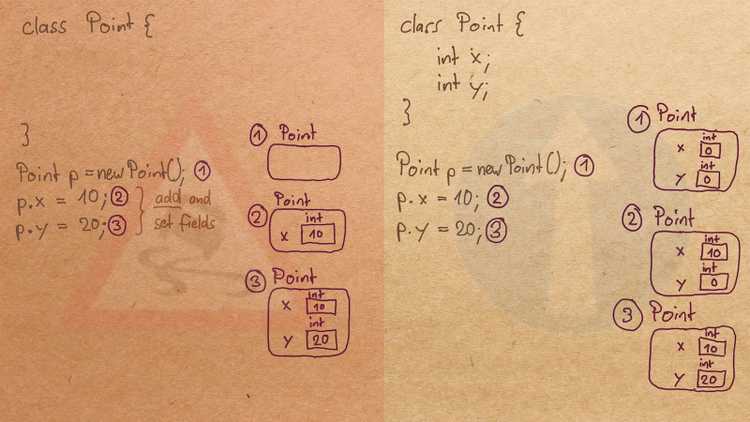 class Point {
}
Point p = new Point(); ①
p.x = 10; ②
p.y = 20; ③
add and
set fields
① Point
Point
②
int
x 10
③ Point
int
x 10
int
y 20
class Point {
int x;
int y;
}
Point p = new Point(); ①
p.x = 10; ②
p.y = 20; ③
① Point
int
x 0
int
y 0
② Point
int
x 10
int
y 0
③ Point
int
x 10
int
y 20